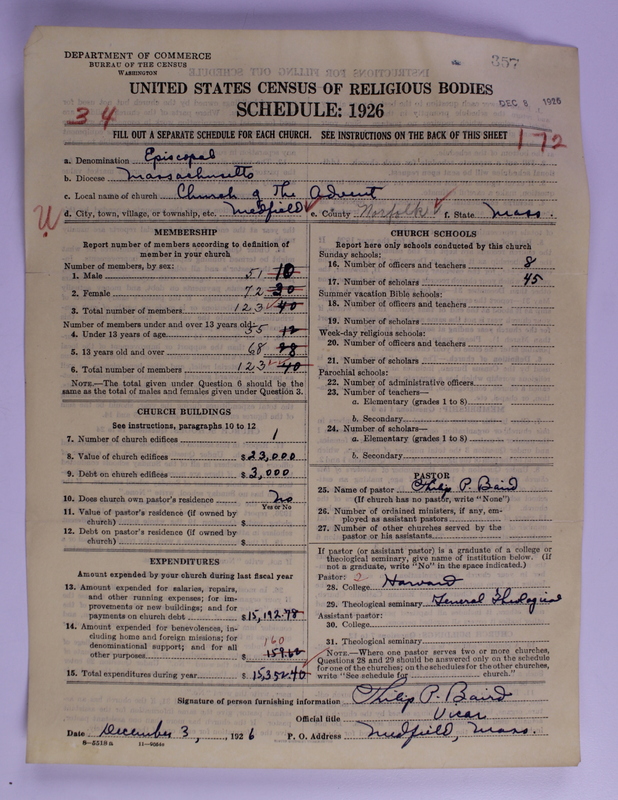 357
DEPARTMENT OF COMMERCE
BUREAU OF THE CENSUS
WASHINGTON
UNITED STATES CENSUS OF RELIGIOUS BODIES
SCHEDULE: 1926
DEC 8 1926
34
FILL OUT A SEPARATE SCHEDULE FOR EACH CHURCH. SEE INSTRUCTIONS ON THE BACK OF THIS SHEET
172
a. Denomination Episcopal
b. Diocese Massachusetts
c. Local name of church Church of The Advent
d. City, town, village, or township, etc. Medfield e. County Norfolk f. State Mass.
MEMBERSHIP
Report number of members according to definition of
member in your church
Number of members, by sex:
1. Male 51 10
2. Female 72 30
3. Total number of members 123 40
Number of members under and over 13 years old:
4. Under 13 years of age 55 12
5. 13 years old and over 68 28
6. Total number of members 123 40
NOTE.—The total given under Question 6 should be the
same as the total of males and females given under Question 3.
CHURCH BUILDINGS
See instructions, paragraphs 10 to 12
7. Number of church edifices 1
8. Value of church edifices $23,000
9. Debt on church edifices $3,000
10. Does church own pastor's residence No
Yes or No
11. Value of pastor's residence (if owned by
church) $
12. Debt on pastor's residence (if owned by
church) $
EXPENDITURES
Amount expended by your church during last fiscal year
13. Amount expended for salaries, repairs,
and other running expenses; for im-
provements or new buildings; and for
payments on church debt $15,192.78
14. Amount expended for benevolences, in-
cluding home and foreign missions; for
denominational support; and for all
other purposes $ 160 159.62
15. Total expenditures during year $15,352.40
CHURCH SCHOOLS
Report here only schools conducted by this church
Sunday schools:
16. Number of officers and teachers 8
17. Number of scholars 45
Summer vacation Bible schools:
18. Number of officers and teachers
19. Number of scholars
Week-day religious schools:
20. Number of officers and teachers
21. Number of scholars
Parochial schools:
22. Number of administrative officers
23. Number of teachers—
a. Elementary (grades 1 to 8)
b. Secondary
24. Number of scholars—
a. Elementary (grades 1 to 8)
b. Secondary
PASTOR
25. Name of pastor Philip P. Baird
(If church has no pastor, write "None")
26. Number of ordained ministers, if any, em-
ployed as assistant pastors
27. Number of other churches served by the
pastor or his assistants
If pastor (or assistant pastor) is a graduate of a college or
theological seminary, give name of institution below. (If
not a graduate, write "No" in the space indicated.)
Pastor: 2
28. College Harvard
29. Theological seminary General Theological
Assistant pastor:
30. College
31. Theological seminary
NOTE.—Where one pastor serves two or more churches,
Questions 28 and 29 should be answered only on the schedule
for one of the churches; on the schedules for the other churches,
write "See schedule for church."
Signature of person furnishing information Philip P. Baird
Official title Vicar
Date December 3, 1926 P. O. Address Medfield, Mass.
8-5518a